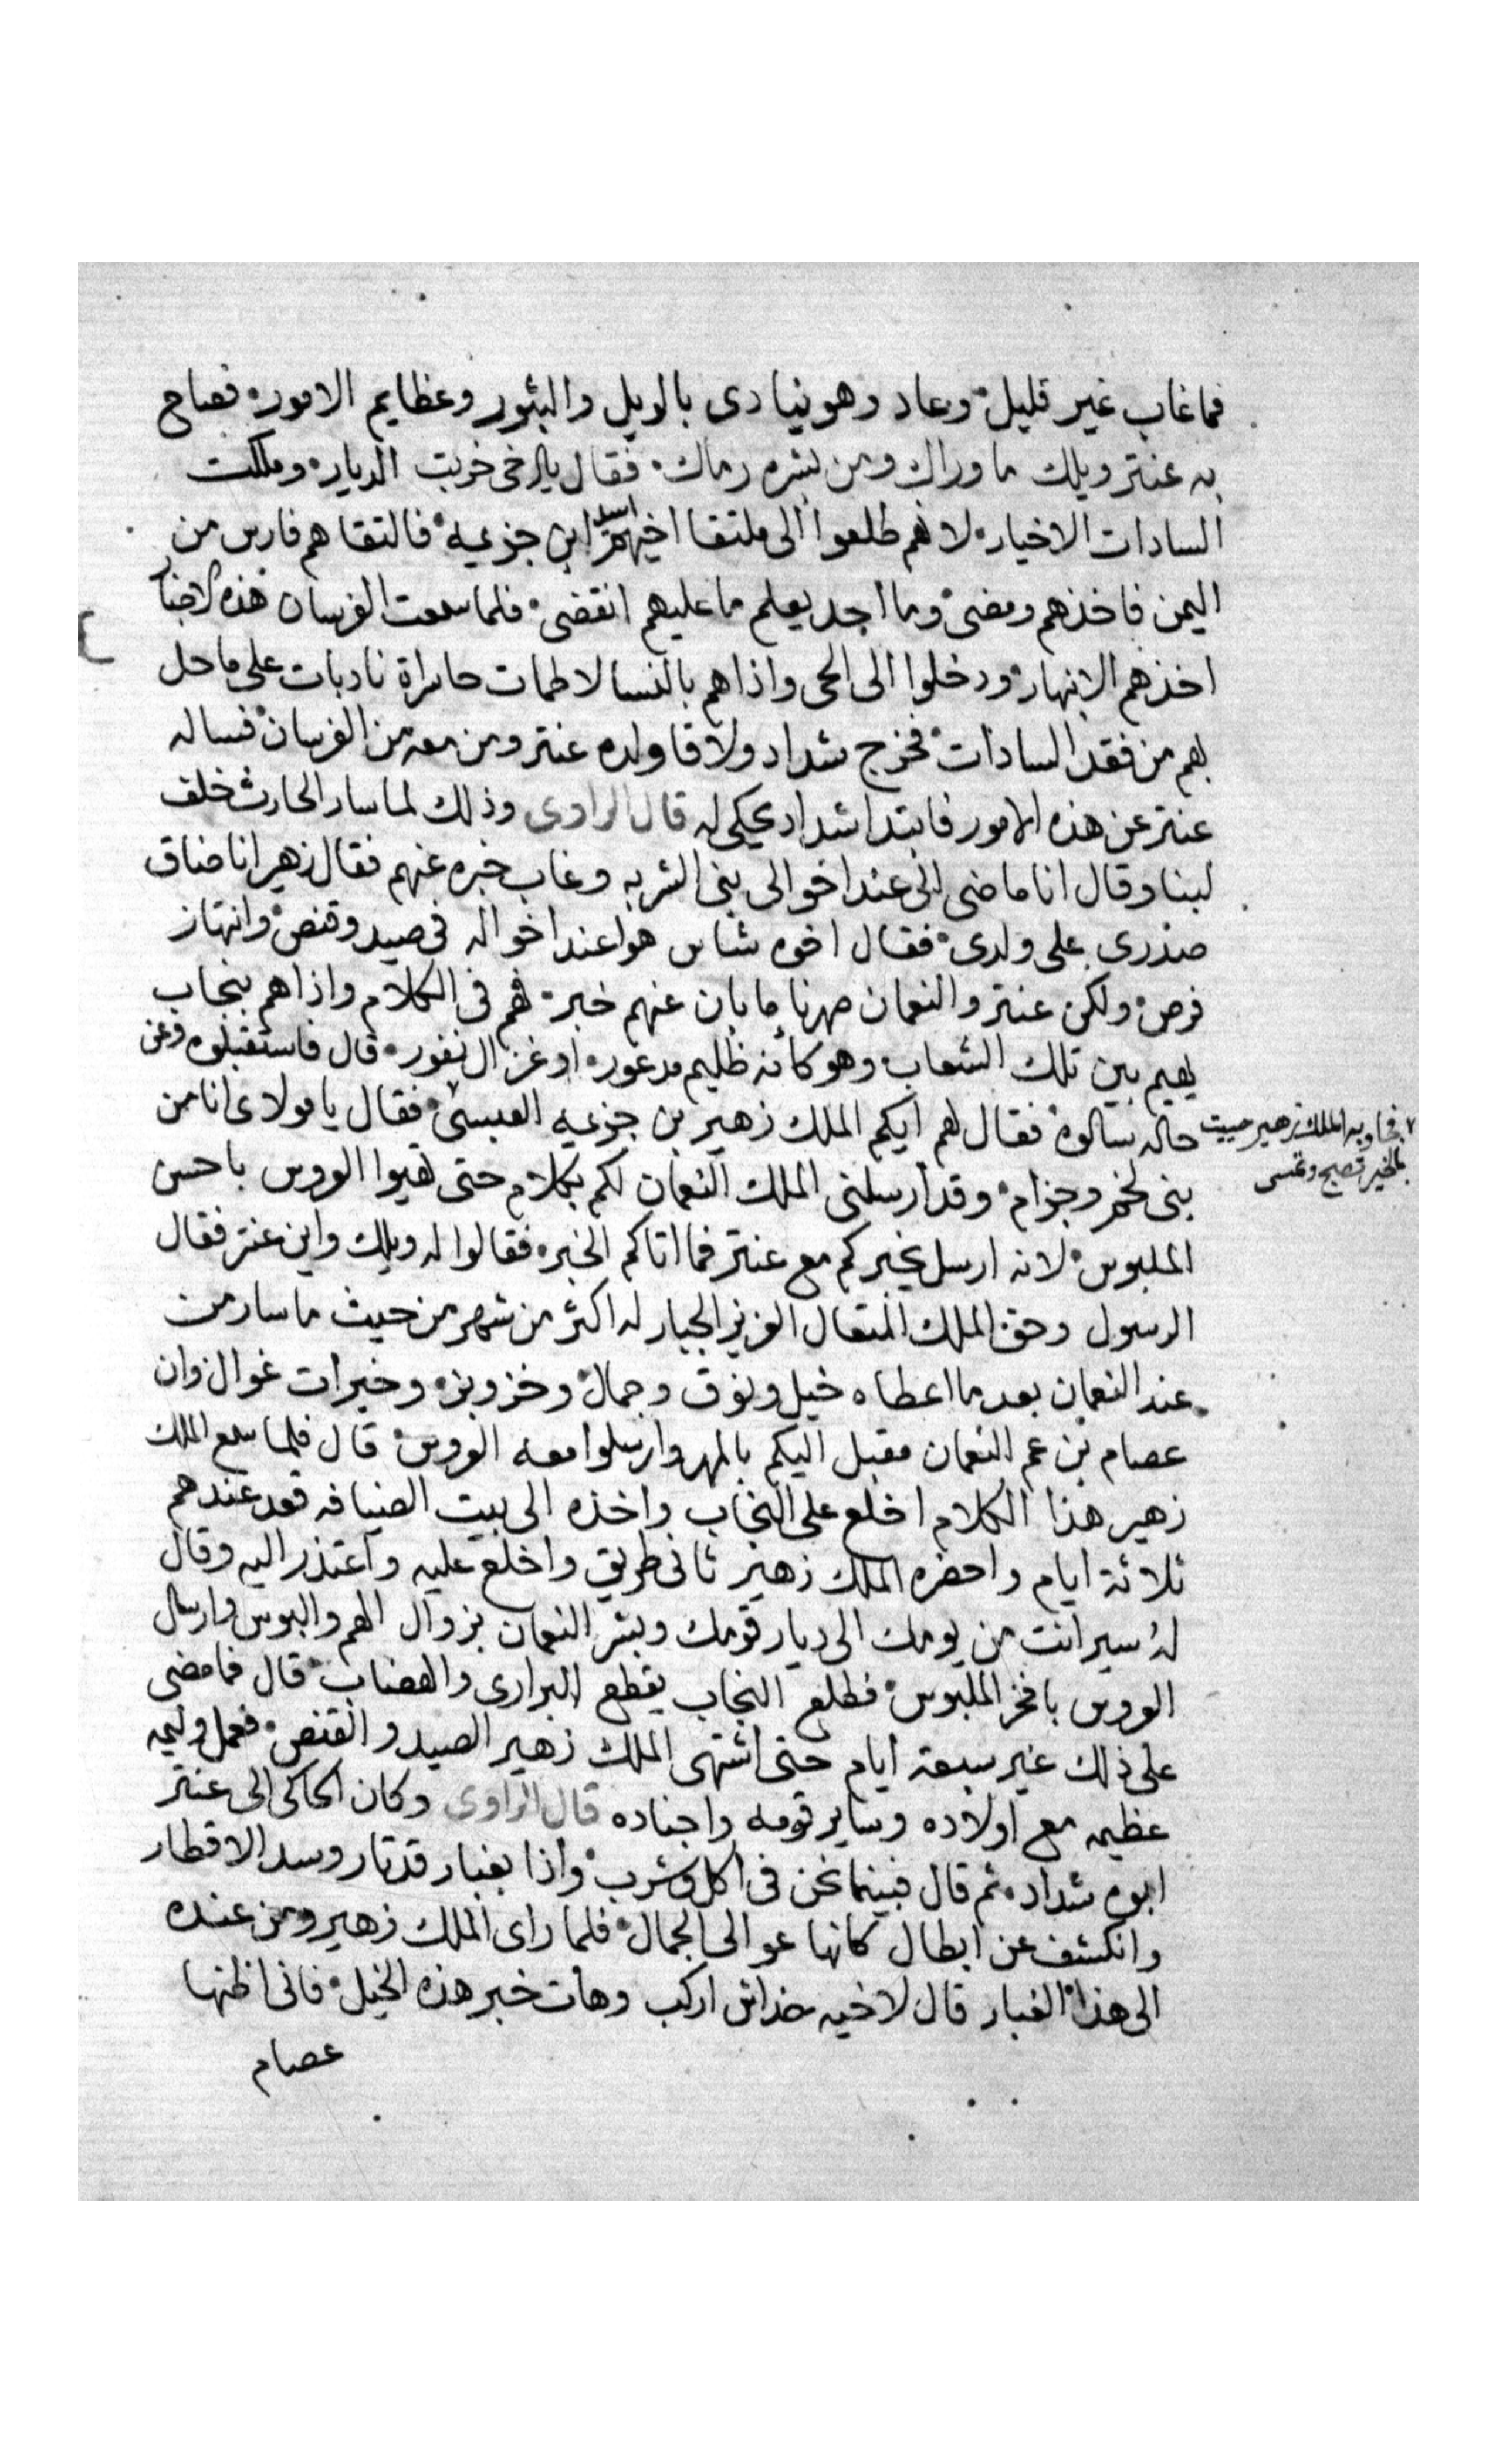 فما غاب غير قليل وعاد وهو ينادى بالويل والبثور وعظايم الامور فصاح
به عنتر ويلك ما وراك ومن بشره رماك فقال يا خى خربت الديار وهلكت
السادات الاخيار لانهم طلعوا الى ملتقا اخيهم اسيد ابن جزيمه فالتقاهم فارس من
اليمن فاخذهم ومضى وما احد يعلم ما عليهم انقضى فلما سمعت الفرسان هذه الاخبار
اخذهم الانبهار ودخلوا الى الحى واذاهم بالنسا لاطمات حاسراة نادبات على ما حل
بهم من فقد السادات فخرج شداد ولاقا ولده عنتر ومن معه من الفرسان فساله
عنتر عن هذه الامور فابتدا شداد يحكى له قال الراوى وذلك لما سار الحارث خلف
لبنا وقال انا ماضى الى عند اخوالى بنى الشربه وغاب خبره عنهم فقال زهير انا ضاق
صدرى على ولدى فقال اخوه شاس هوا عند اخواله فى صيد وقنص وانتهاز
فرص ولكن عنتر والنعمان صهرنا ما بان عنهم خبر فهم فى الكلام واذاهم بنجاب
يهيم بين تلك الشعاب وهو كانه ظليم مدعور او غزال نفور قال فاستقبلوه وعن
حاله سالوه فقال لهم ايكم الملك زهير بن جزيمه العبسى فقال يا مولاى انا من
فجاوبه الملك زهير حييت
بالخير تصبح وتمسى
بنى لخم وجزام وقد ارسلنى الملك النعمان لكم بكلام حتى تهيوا العروس باحسن
الملبوس لانه ارسل يخبركم مع عنتر فما اتاكم الخبر فقالوا له ويلك واين عنتر فقال
الرسول وحق الملك المتعال العزيز الجبار له اكثر من شهر من حيث ما سار من
عند النعمان بعد ما اعطاه خيل ونوق وجمال وخز وبز وخيرات غوال وان
عصام بن عم النعمان مقبل اليكم بالمهر وارسلوا معه العروس قال فلما سمع الملك
زهير هذا الكلام اخلع على النجاب واخذه الى بيت الضيافه قعد عندهم
ثلاثة ايام واحضره الملك زهير ثانى طريق واخلع عليه واعتذر اليه وقال
له سير انت من يومك الى ديار قومك وبشر النعمان بزوال الهم والبوس وارسال
العروس بافخر الملبوس فطلع النجاب يقطع البرارى والهضاب قال فما مضى
على ذلك غير سبعة ايام حتى اشتهى الملك زهير الصيد والقنص فعمل وليمه
عظيمه مع اولاده وساير قومه واجناده قال الراوى وكان الحاكى الى عنتر
ابوه شداد ثم قال فبينما نحن فى اكل وشرب واذا بغبار قد ثار وسد الاقطار
وانكشف عن ابطال كانها عوالى الجمال فلما راى الملك زهير ومن عنده
الى هذا الغبار قال لاخيه خداش اركب وهات خبر هذه الخيل فانى اظنها
عصام